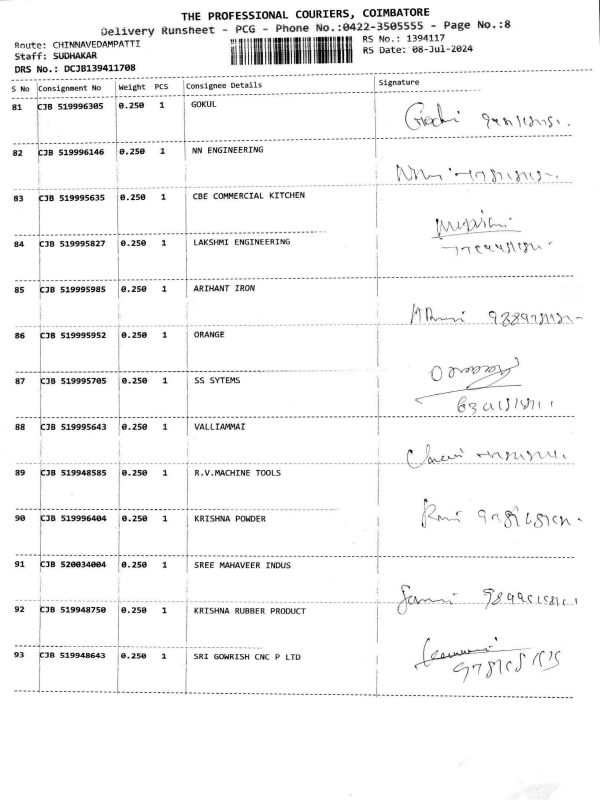 THE PROFESSIONAL COURIERS, COIMBATORE
Delivery Runsheet - PCG - Phone No.:0422-3505555 - Page No.:8
Route: CHINNAVEDAMPATTI
RS No.: 1394117
Staff: SUDHAKAR
RS Date: 08-Jul-2024
DRS No.: DCJB139411708
S No Consignment No Weight PCS Consignee Details Signature
81 CJB 519996305 0.250 1 GOKUL
82 CJB 519996146 0.250 1 NN ENGINEERING
83 CJB 519995635 0.250 1 CBE COMMERCIAL KITCHEN
84 CJB 519995827 0.250 1 LAKSHMI ENGINEERING
85 CJB 519995985 0.250 1 ARIHANT IRON
86 CJB 519995952 0.250 1 ORANGE
87 CJB 519995705 0.250 1 SS SYTEMS
88 CJB 519995643 0.250 1 VALLIAMMAI
89 CJB 519948585 0.250 1 R.V.MACHINE TOOLS
90 CJB 519996404 0.250 1 KRISHNA POWDER
91 CJB 520034004 0.250 1 SREE MAHAVEER INDUS
92 CJB 519948750 0.250 1 KRISHNA RUBBER PRODUCT
93 CJB 519948643 0.250 1 SRI GOWRISH CNC P LTD